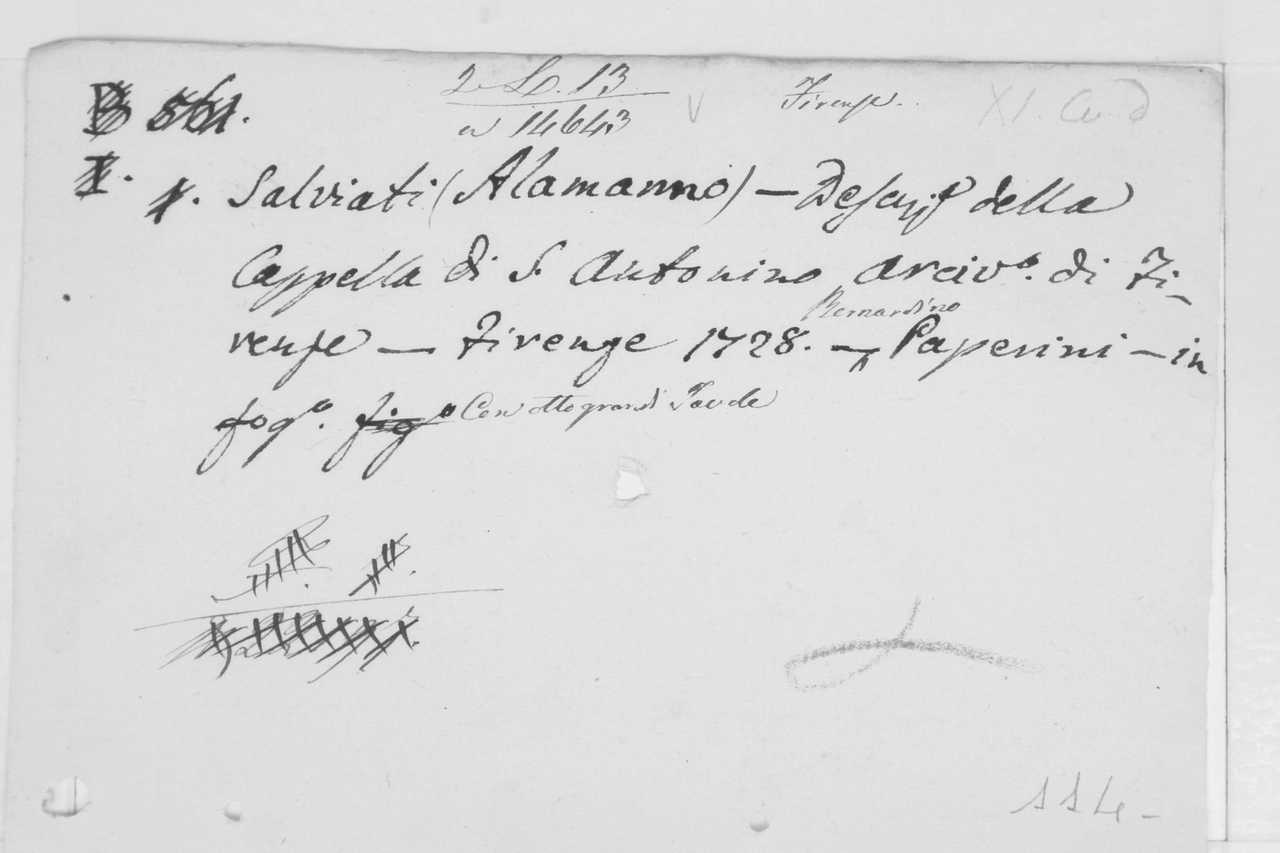 2. L. 13
14643
Firenze.
B 561.
I. 1. Salviati (Alamanno) — Descriz.e della
Cappella di S. Antonino Arciv.o di Fi-
renze — Firenze 1728. — Bernardino Paperini — in
fog.o fig.o Con otto grandi Tavole
114 -